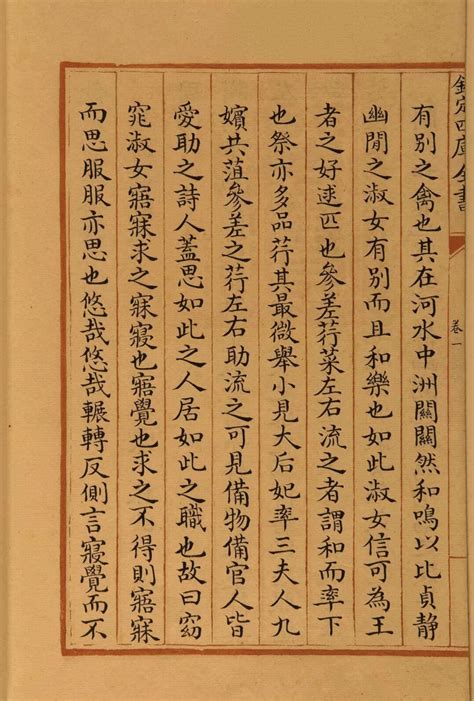 欽定四庫全書
卷一
有別之禽也其在河水中洲關關然和鳴以比貞靜
幽閒之淑女有別而且和樂也如此淑女信可為王
者之好逑匹也參差荇菜左右流之者謂和而率下
也祭亦多品荇其最微舉小見大后妃率三夫人九
嬪共菹參差之荇左右助流之可見備物備官人皆
愛助之詩人蓋思如此之人居如此之職也故曰窈
窕淑女寤寐求之寐寢也寤覺也求之不得則寤寐
而思服服亦思也悠哉悠哉輾轉反側言寢覺而不